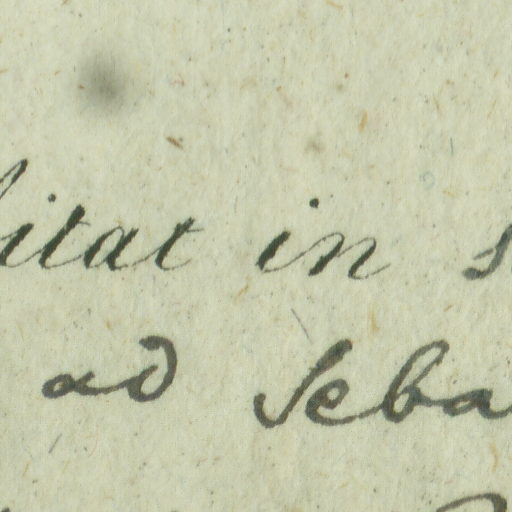 itat in s
ad Seba